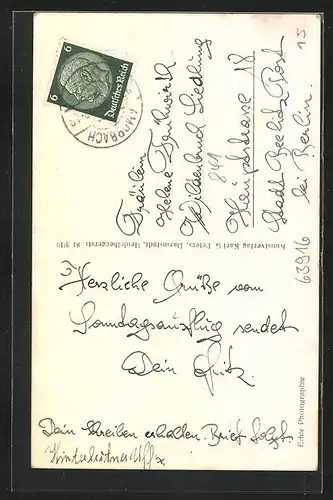 6 Deutsches Reich 6
AMORBACH
Fräulein
Helene
Wildenbruch Siedlung
Hauptstrasse 18
Stadt Beelitz Post
bei Berlin.
Kunstverlag Karl G. Peters, Darmstadt, Heidelbergerstr. 81
Herzliche Grüße vom
Sonntagsausflug sendet
Dein Fritz
Dein Schreiben erhalten. Brief folgt.
Echte Photographie
63916
15